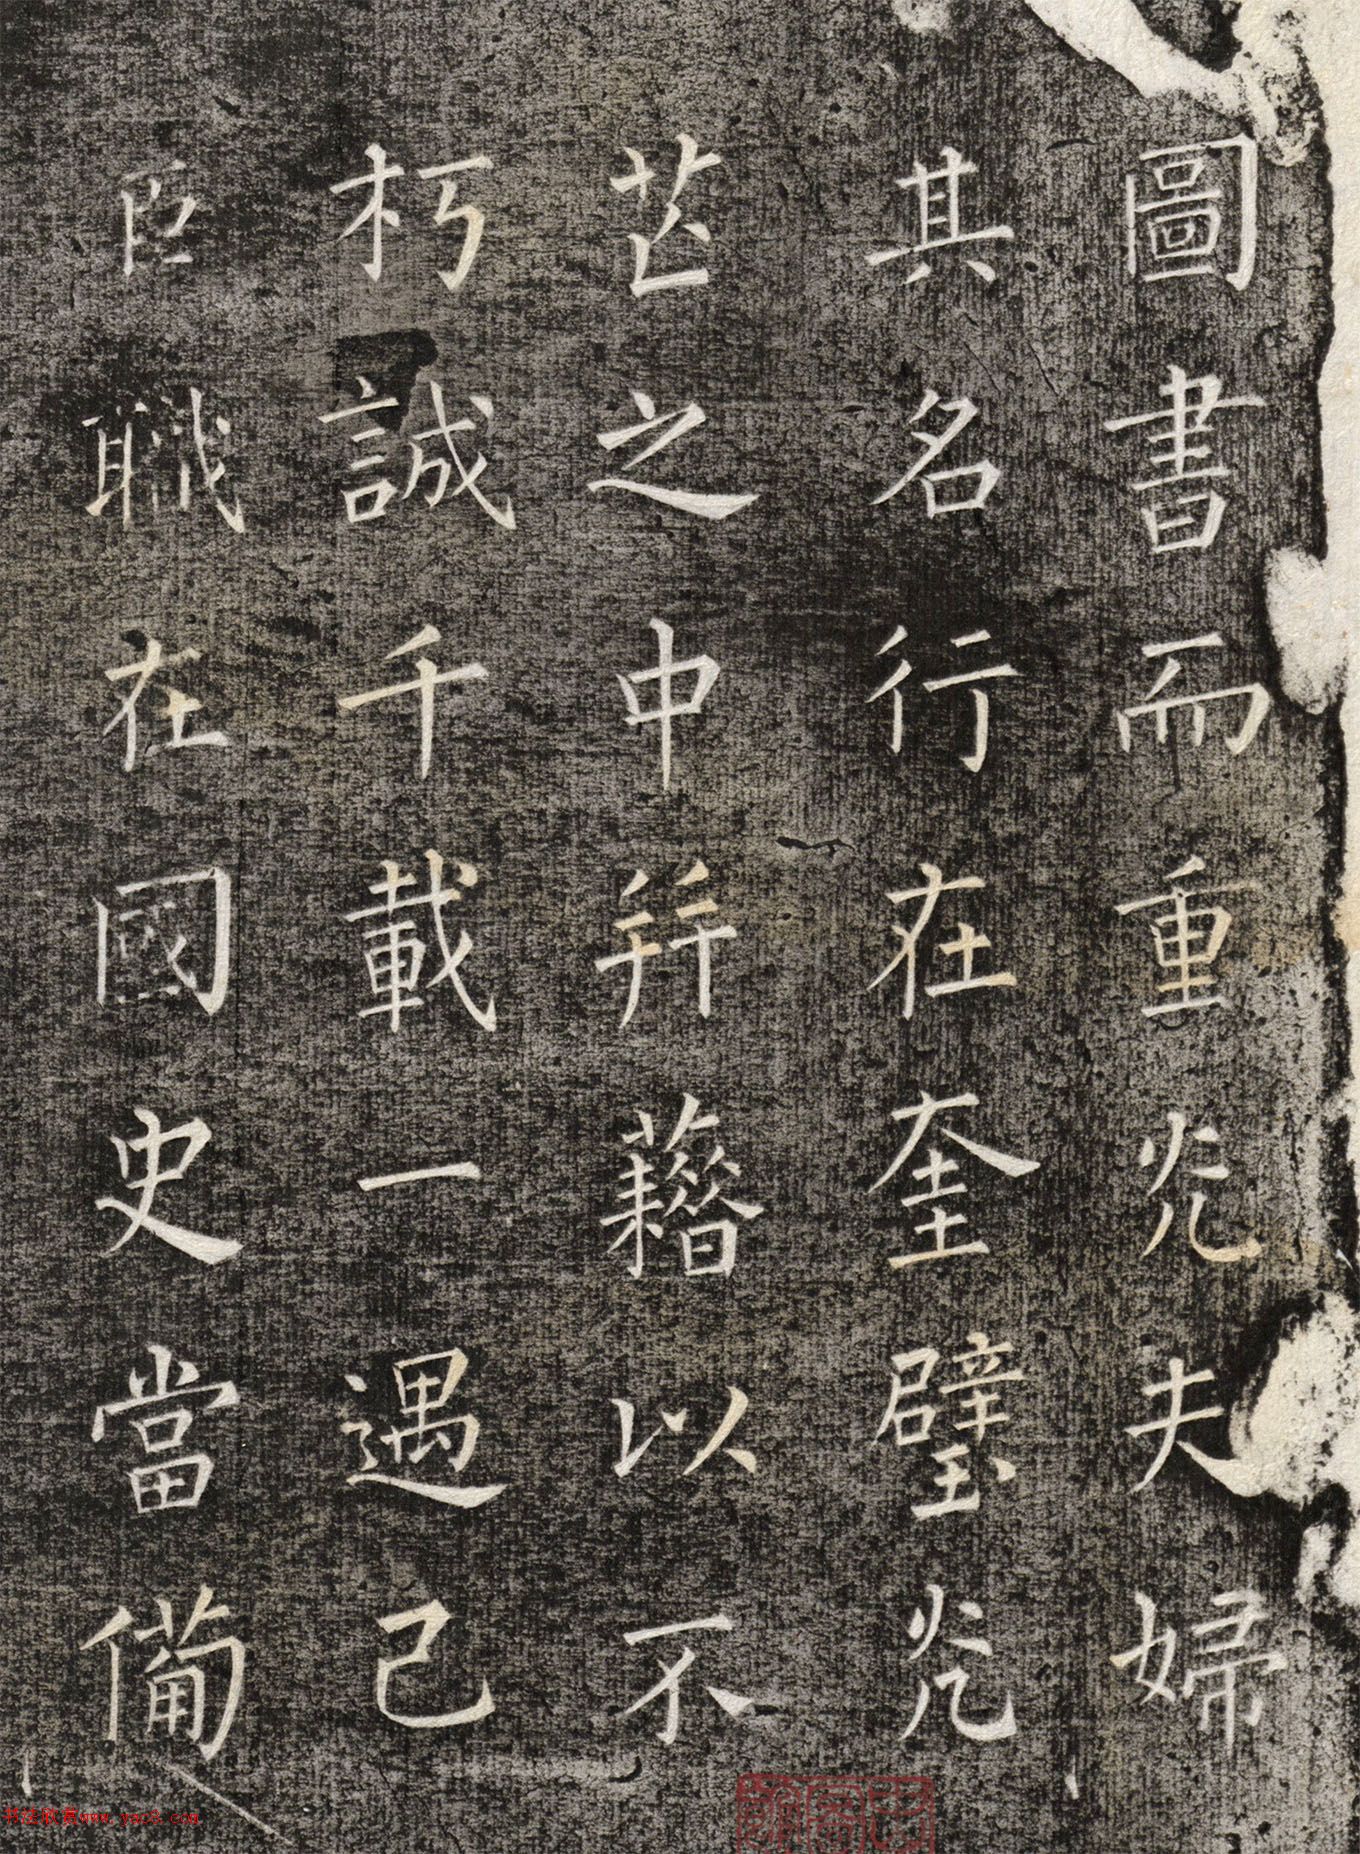 圖書而重光夫婦
其名行在奎璧光
芒之中并藉以不
朽誠千載一遇已
臣職在國史當備
书法欣赏www.yac8.com